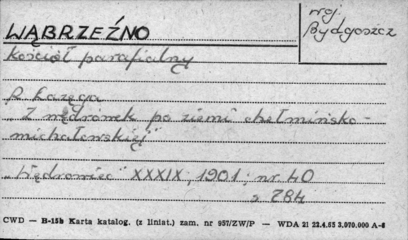 WĄBRZEŹNO
woj.
Bydgoszcz
Kościół parafialny
R Łazęga
„Z wędrówek po ziemi chełmińsko-
michałowskiej"
„Wędrowiec" XXXIX, 1901, nr 40
s 784
CWD — B-15b Karta katalog. (z liniat.) zam. nr 957/ZW/P — WDA 21 22.4.55 3.070.000 A-6